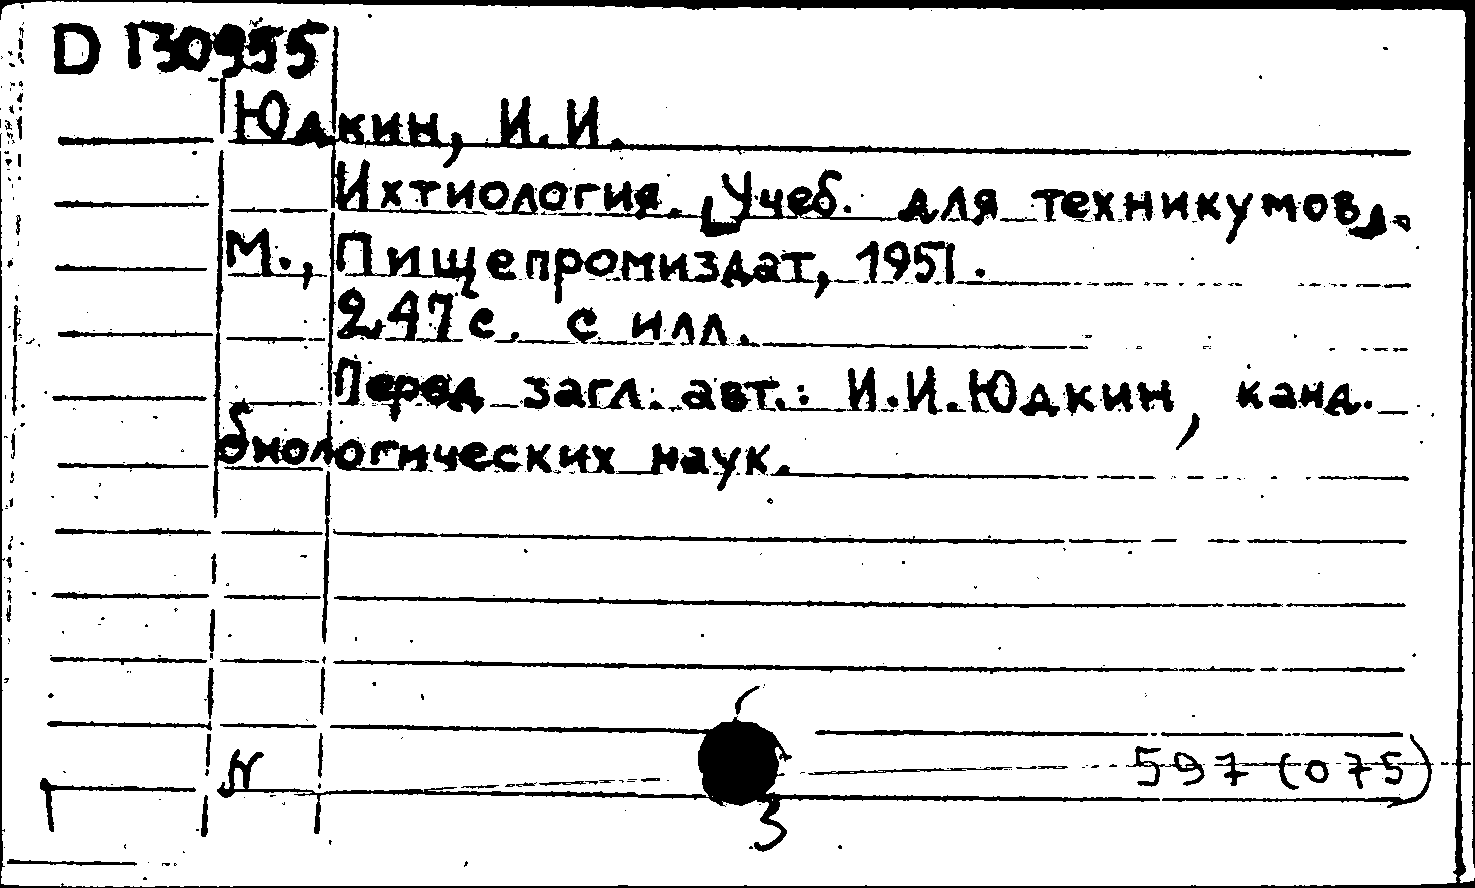 D 130955
Юдкин, И.И.
Ихтиология. [Учеб. для техникумов].
М., Пищепромиздат, 1951.
247 с. с илл.
Перед загл. авт.: И.И.Юдкин, канд.
биологических наук.
N
597 (075)
3